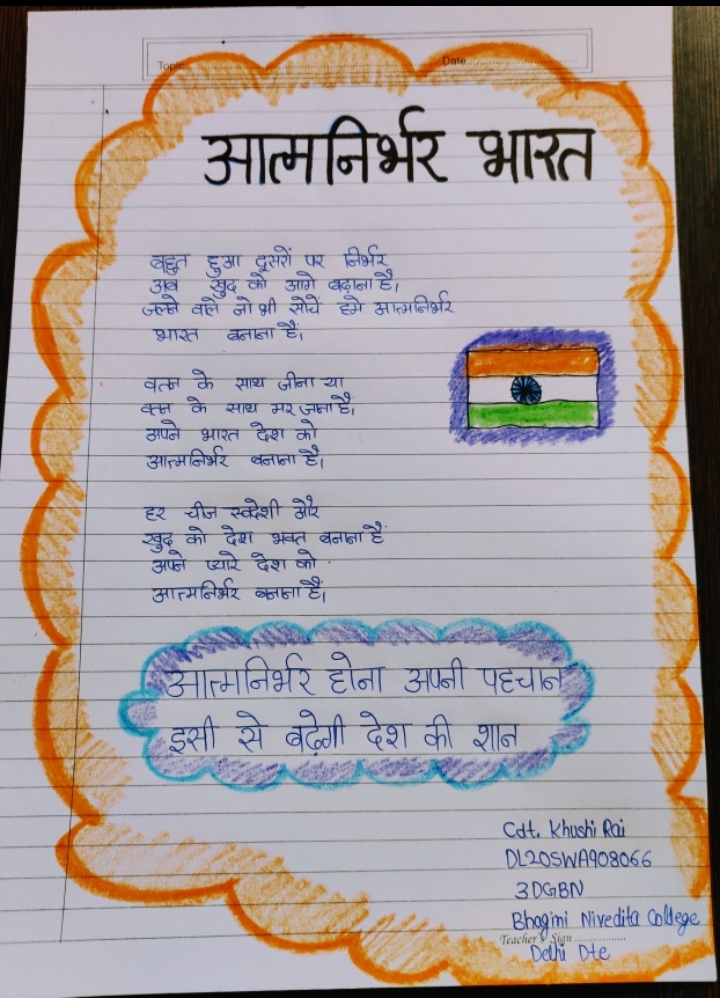 Topic
Date
आत्मनिर्भर भारत
बहुत हुआ दूसरों पर निर्भर
अब खुद को आगे बढ़ाना है,
जलने वाले जो भी सोचें हमे आत्मनिर्भर
भारत बनाना हैं,
वतन के साथ जीना या
वतन के साथ मर जाना है,
अपने भारत देश को
आत्मनिर्भर बनाना है,
हर चीज स्वदेशी और
खुद को देश भक्त बनाना हैं
अपने प्यारे देश को
आत्मनिर्भर बनाना हैं,
आत्मनिर्भर होना अपनी पहचान
इसी से बढ़ेगी देश की शान
Cdt. Khushi Rai
DL20SWA908066
3DGBN
Bhagini Nivedita College
Teacher's Sign
Delhi Dte